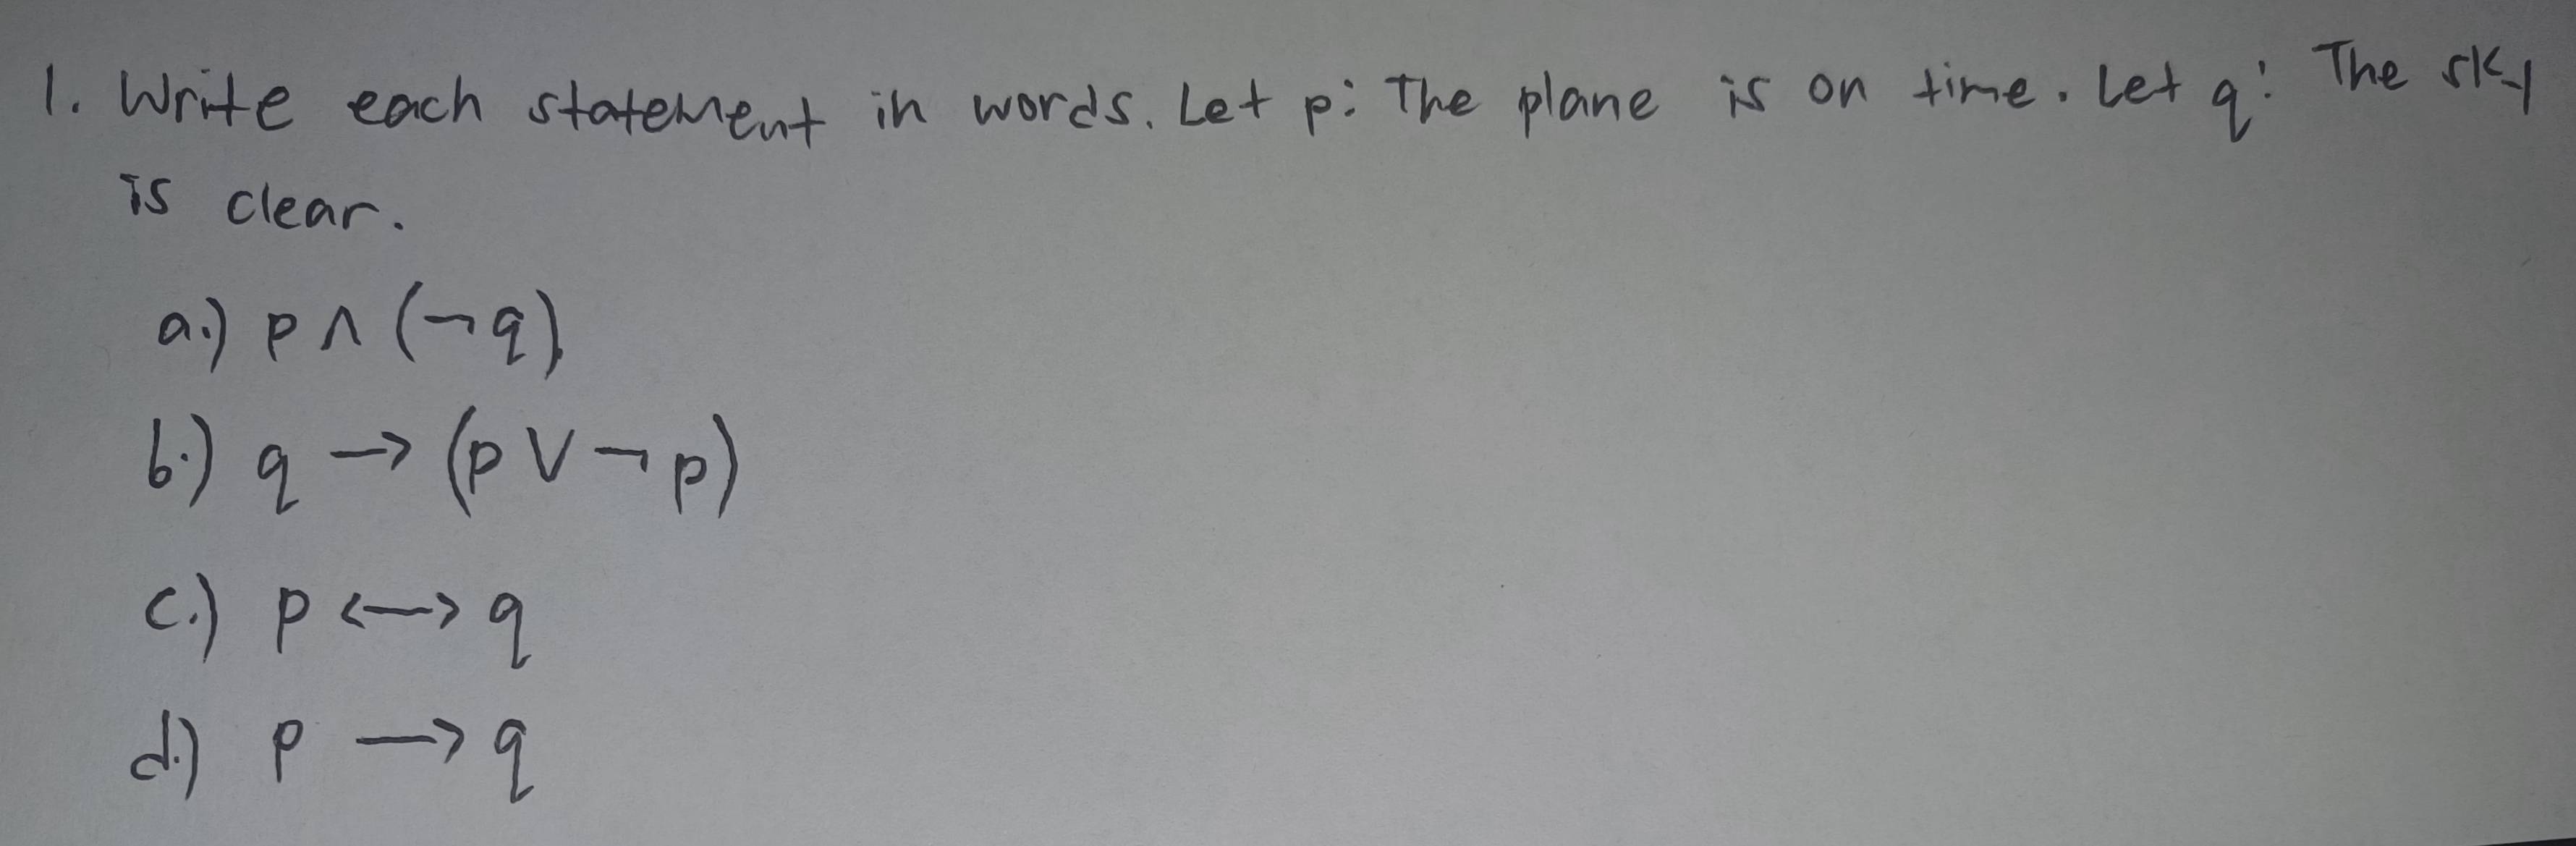 1. Write each statement in words. Let p: The plane is on time. Let q: The sky
is clear.
a.) p ∧ (¬q)
b.) q → (p ∨ ¬p)
c.) p <—> q
d.) p —> q